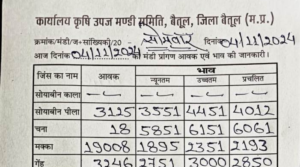 कार्यालय कृषि उपज मण्डी समिति, बैतूल, जिला बैतूल (म.प्र.)
क्रमांक/मंडी/ज+सांख्यिकी/20 - सोमवार दिनांक 04/11/2024
आज दिनांक 04/11/2024 को मंडी प्रांगण आवक एवं भाव की जानकारी।
भाव
जिंस का नाम आवक न्यूनतम उच्चतम प्रचलित
सोयाबीन काला - - - -
सोयाबीन पीला 3125 3551 4451 4012
चना 18 5851 6151 6061
मक्का 19008 1895 2351 2193
गेंहू 3246 2751 3000 2850